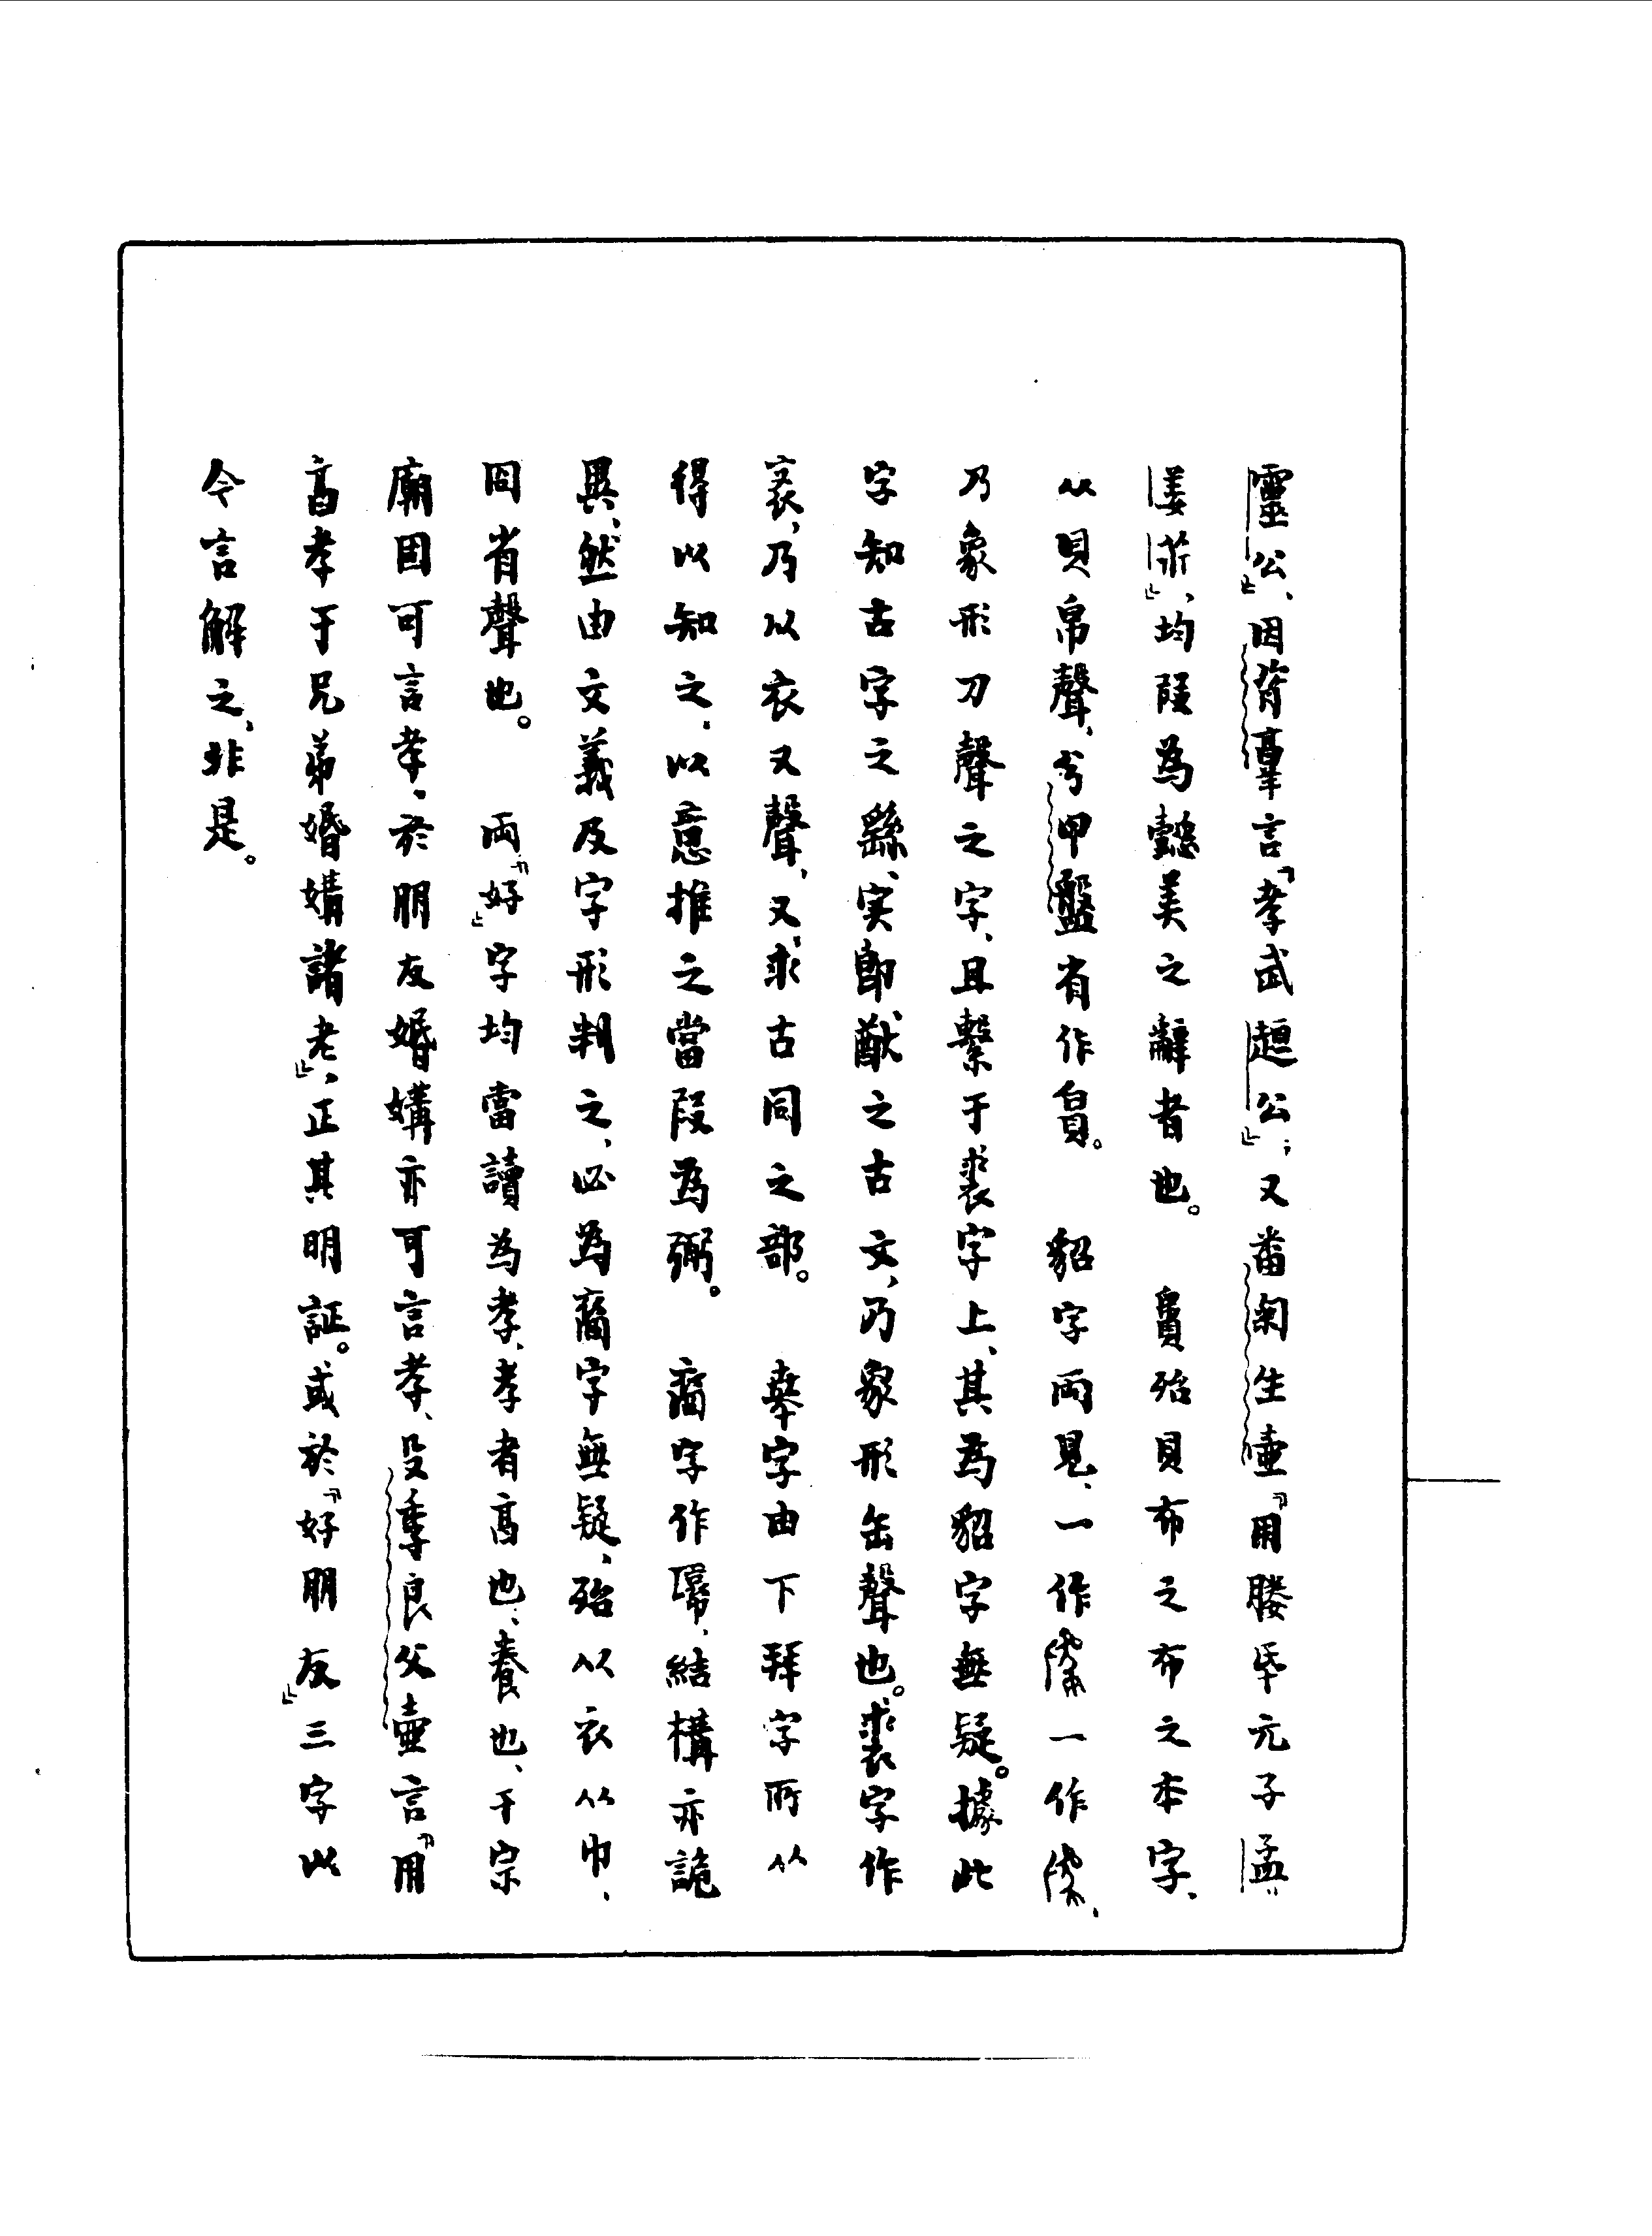 靈公」、因𬁼𦎫言「孝武趄公」；又番匊生壺「用媵氒元子孟
姜㝊」、均叚為懿美之辭者也。　𧷽殆貝布之布之本字、
从貝帛聲、兮甲盤有作䝬。　貂字兩見、一作　一作　、
乃象形刀聲之字、且繫于裘字上、其為貂字無疑。據此
字知古字之繇、实即猷之古文、乃象形缶聲也。裘字作
𧚍、乃从衣又聲、又、求古同之部。　𠦪字由下拜字所从
得以知之、以意推之當叚為弼。　字作　、結構亦詭
異、然由文義及字形判之、必為字無疑、殆从衣从巾、
㐭省聲也。　兩「好」字均當讀為孝、孝者高也、養也、于宗
廟固可言孝、於朋友婚媾亦可言孝、殳季良父壺言「用
亯孝于兄弟婚媾諸老」、正其明証。或於「好朋友」三字以
今言解之、非是。